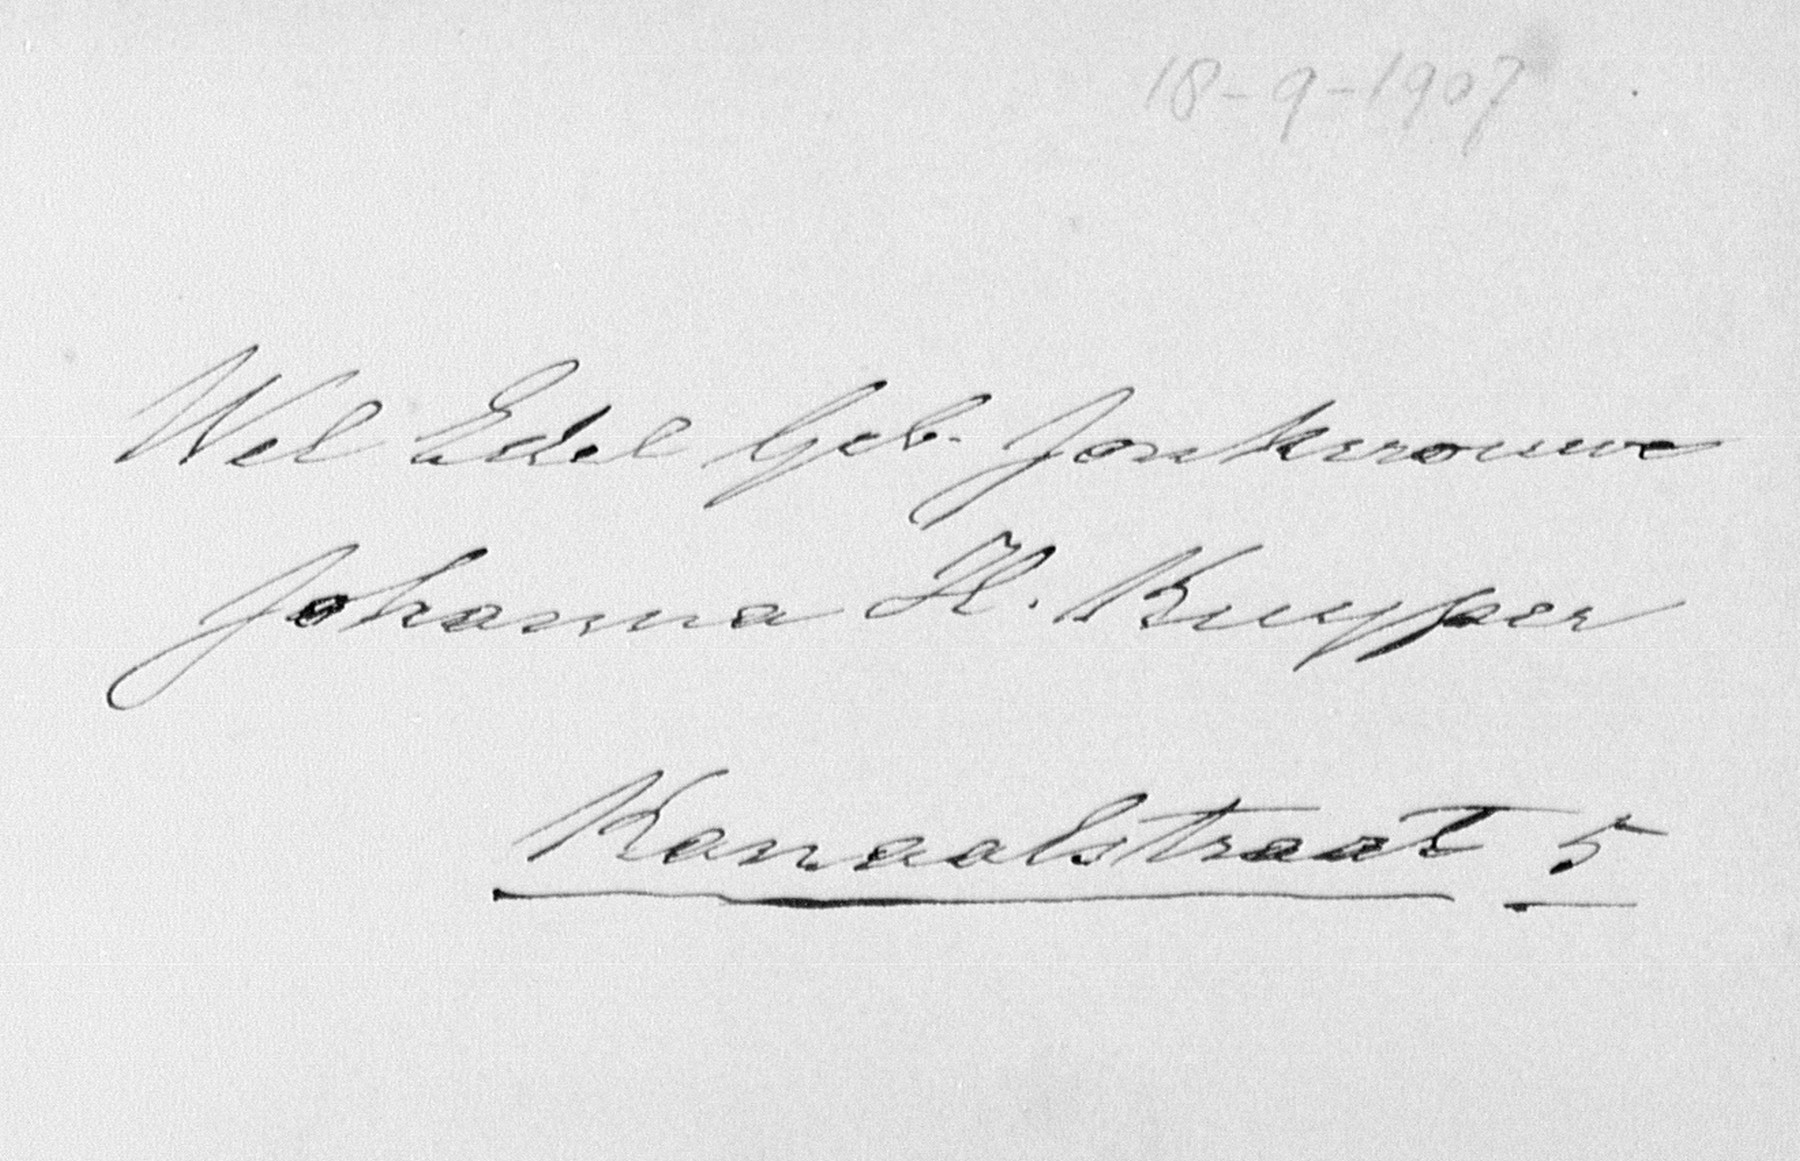 18-9-1907
Wel Edel Geb. Jonkvrouwe
Johanna H. Kuyper
Kanaalstraat 5